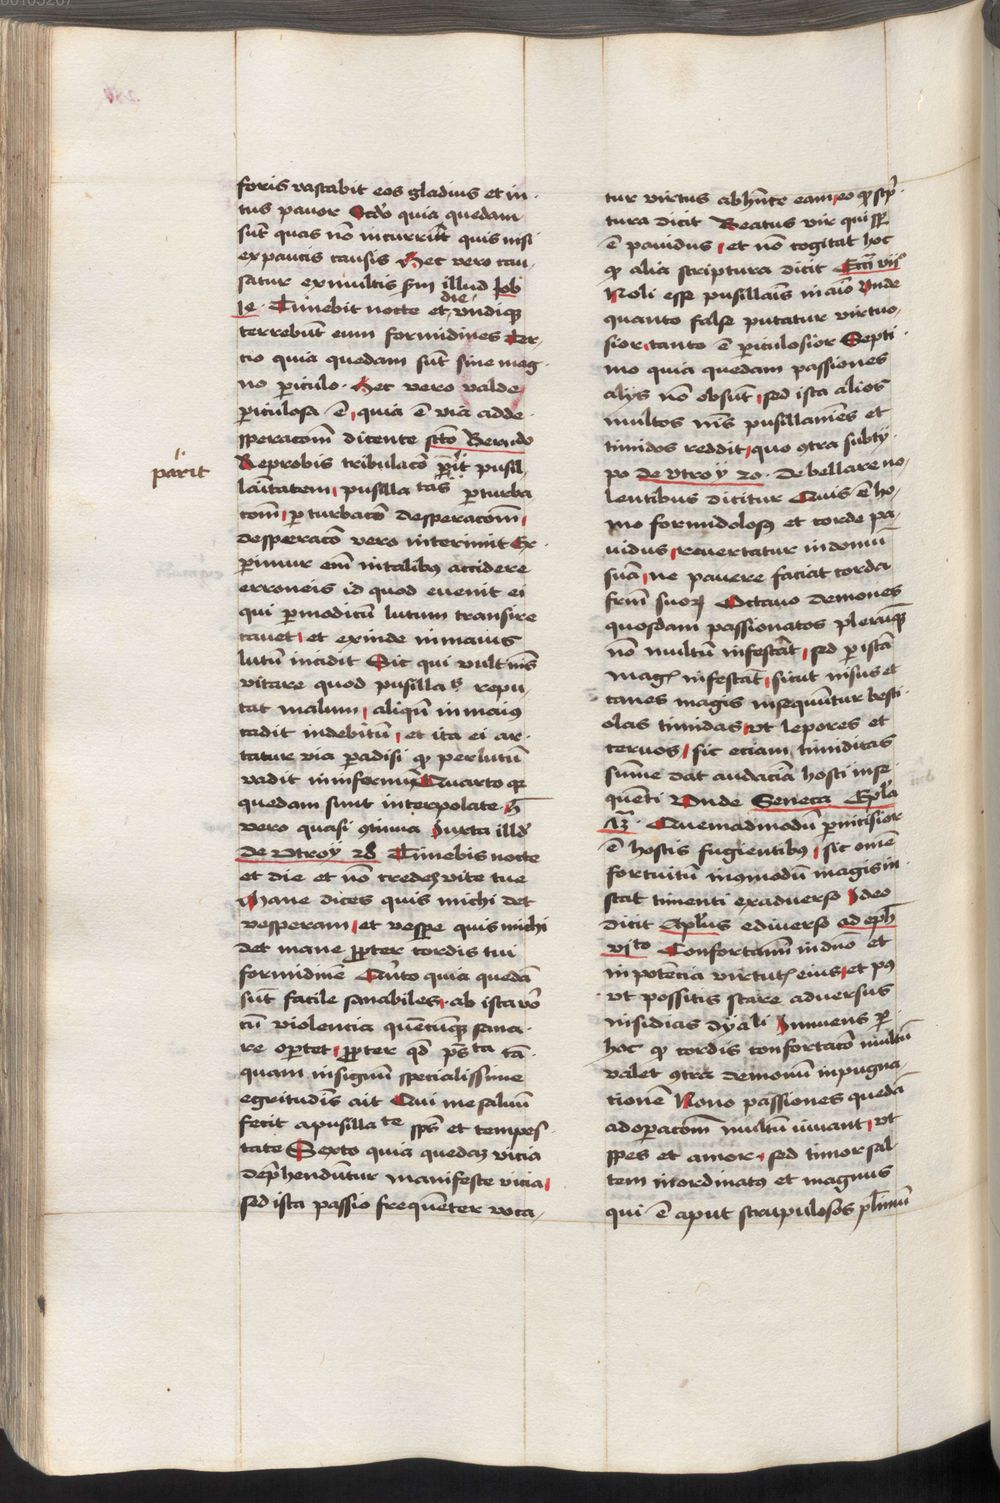 foris vastabit eos gladius et in
tus pavor Scđo quia quedam
sūt quas nō incurrūt quis nisi
ex paucis causis Hec vero cau
satur ex multis scđm illud Job
Timebit nocte et die undiqȝ
terrebūt eum formidines Ter
tio quia quedam sūt sine mag
no periculo Hec vero valde
periculosa ē quia ē via ad de
speracōm dicente scto Bernͬdo
Reprobis tribulacō parit pusil
lāītatem pusilla tas perturba
tom perturbacō desperacōm
desperacō vero interimit Ex
perimur em in talibus accidere
erroneis id quod evenit ei
qui permodicū lutum transire
cavet et exinde in maius
lutū incidit Sic qui vult nīs
vitare quod pusilla reputat
tat malum aliqn in maius
cadit in debitum et ita ei ar
tatur via paradisi qȝ per lutū
vadit in infernum Quarto qȝ
quedam sunt interpolate h̄
vero quasi ꝯtinua Juxta illđ
Deutroy 28 Timebis nocte
et die et nō credeȝ vite tue
Mane dices quis michi det
vesperam et vespere quis michi
det mane ꝓpter cordis tui
formidinē Qnto quia quedā
sūt facile sanabiles ab ista vō
cū violencia quēcūqȝ sana
re oportet ꝓpter qđ ps̄ta tā
quam in signum specialissime
egritudīs ait Qui me salvū
fecit a pusilla te sps̄ et tempes
tate Sexto quia quedaȝ vicia
deprehenduntur manifeste vicia
sed ista passio frequēter voca
parit
tur virtus ab hn̄te eam eo qȝ scrip
tura dicit Beatus vir qui semper
ē pavidus et nō cogitat hoc
qȝ alia scriptura dicit Ecci vii
Noli esse pusillāīs in aīo Unde
quanto false putatur virtuo
sior tanto ē periculosior Septi
mo quia quedam passiones
alijs nō obsūt sed ista alios
multos nīs pusillanīes et
timidos reddit quo ꝯtra subty
po Deutroy 20 De bellare no
lentibus dicitur Quis ē ho
mo formidolosȝ et corde pa
vidus revertatur in domū
suā ne pavere faciat corda
frm suoꝝ Octavo demones
quosdam passionatos plerūqȝ
nō multū infestāt sed per istā
magis infestāt sicut nisus et
canes magis insequūtur besti
olas timidas ut lepores et
cervos sic eciam timiditas
sume dat audaciā hosti inse
quēti Unde Seneca Epla
Quemadmodū pernicisior
ē hostis fugientibus sic omē
fortuitū incomodū magis in
stat timenti ex adverso Ideo
dicit Aplus e diverso ad eph
vi to Confortamī in dn̄o et
in potēcia virtutꝭ eius et pȝ
ut possitis stare adversus
insidias dyāli Innuens per
hoc qȝ cordis confortacō multū
valet ꝯtra demonū inpugna
tionē Nono passiones quedā
ad operacōm multū iuvant ut
spes et amor sed timor sal
tem inordinatȝ et magnus
qui ē aput scrupulosos plrimū